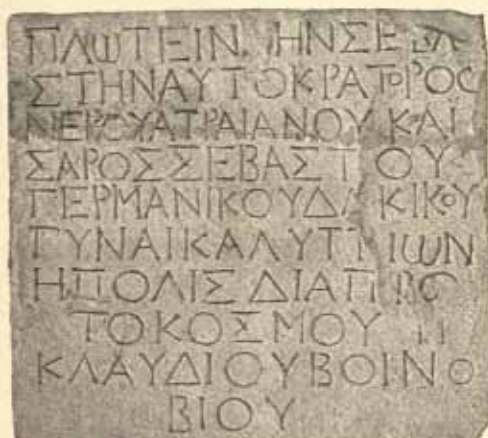 ΠΛΩΤΕΙΝ ΗΝΣΕΒΑ
ΣΤΗΝΑΥΤΟΚΡΑΤΟΡΟΣ
ΝΕΡΟΥΑΤΡΑΙΑΝΟΥΚΑΙ
ΣΑΡΟΣΣΕΒΑΣΤΟΥ
ΓΕΡΜΑΝΙΚΟΥΔΑΚΙΚΟΥ
ΓΥΝΑΙΚΑΛΥΤΤΙΩΝ
ΗΠΟΛΙΣΔΙΑΠΡΩ
ΤΟΚΟΣΜΟΥ
ΚΛΑΥΔΙΟΥΒΟΙΝΟ
ΒΙΟΥ